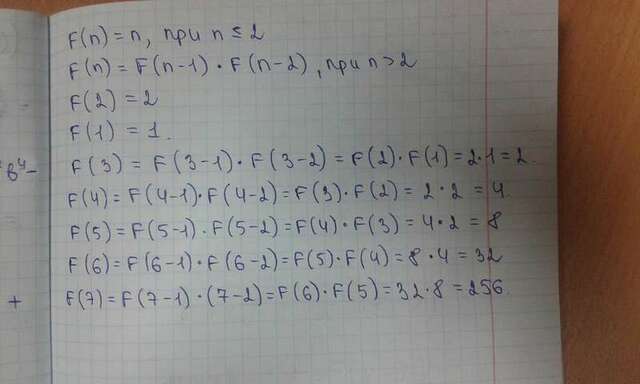 F(n) = n, при n ≤ 2
F(n) = F(n-1) · F(n-2), при n > 2
F(2) = 2
F(1) = 1.
F(3) = F(3-1) · F(3-2) = F(2) · F(1) = 2·1 = 2.
F(4) = F(4-1)·F(4-2) = F(3)·F(2) = 2·2 = 4
F(5) = F(5-1)·F(5-2) = F(4)·F(3) = 4·2 = 8
F(6) = F(6-1)·F(6-2) = F(5)·F(4) = 8·4 = 32
+ F(7) = F(7-1)·(7-2) = F(6)·F(5) = 32·8 = 256.